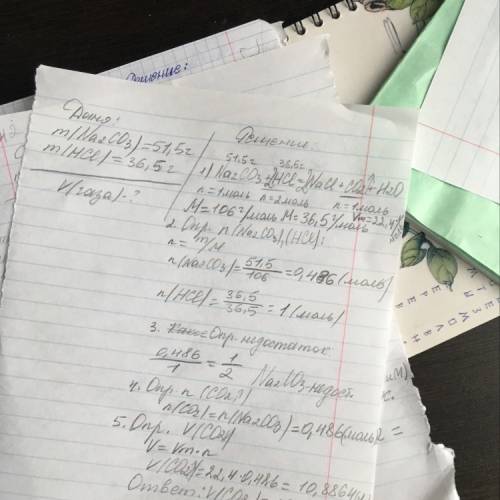 Решение:
Дано:
m(Na2CO3)=51,5г
m(HCl)=36,5г
V(газа)-?
Решение:
51,5г 36,5г
1) Na2CO3+2HCl=2NaCl+CO2↑+H2O
n=1моль n=2моль n=1моль
M=106г/моль M=36,5г/моль Vm=22,4
2. Опр. n(Na2CO3),(HCl):
n=m/M
n(Na2CO3)=51,5/106=0,486(моль)
n(HCl)=36,5/36,5=1(моль)
3. Опр. недостаток
0,486/1=1/2 Na2CO3-недост.
4. Опр. n(CO2)
n(CO2)=n(Na2CO3)=0,486(моль)
5. Опр. V(CO2)
V=Vm·n
V(CO2)=22,4·0,486=10,8864
Ответ: V(CO2)